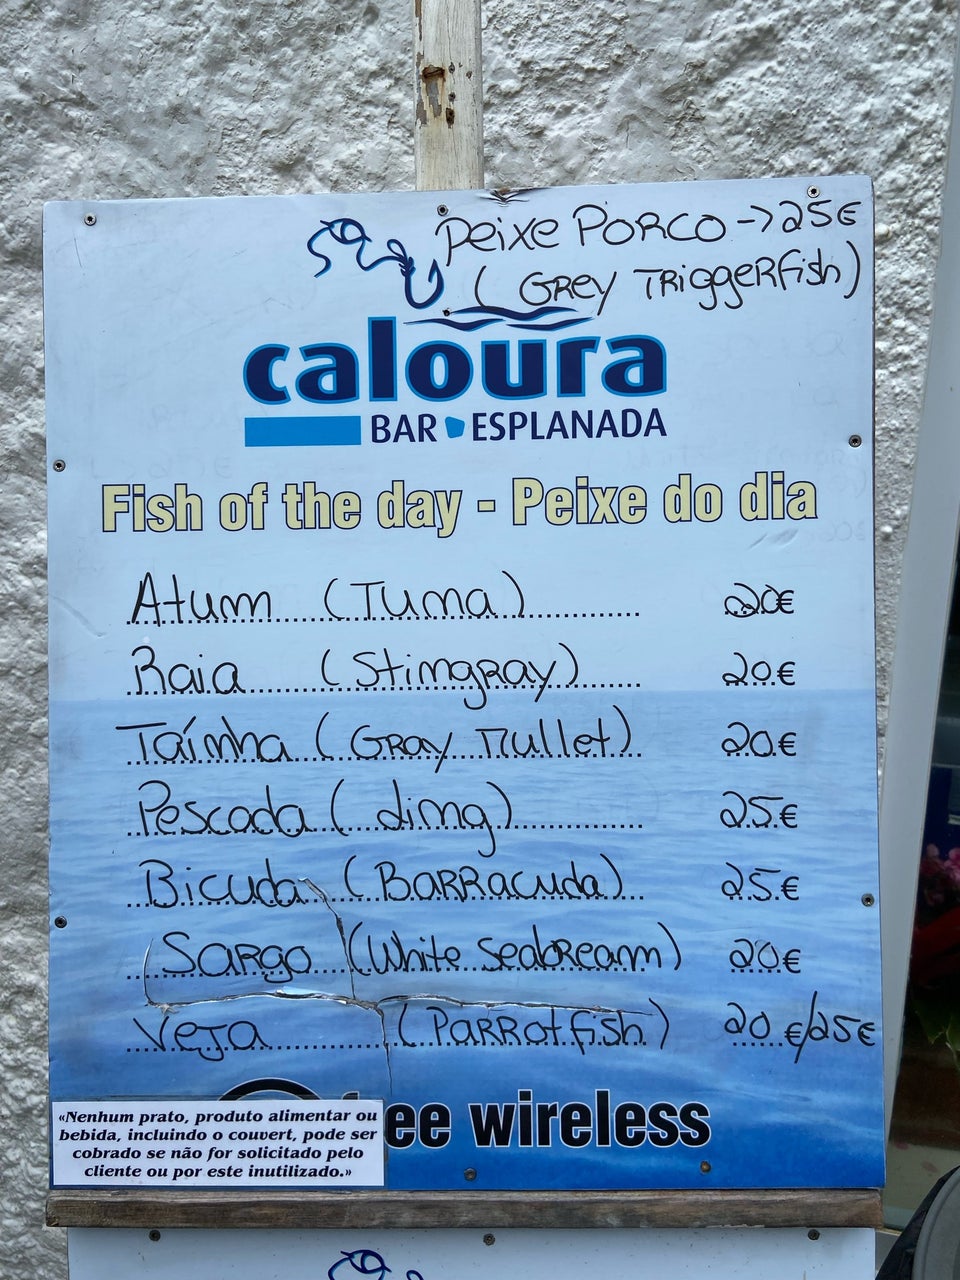 Peixe Porco -> 25€
(Grey Triggerfish)
caloura
BAR ESPLANADA
Fish of the day - Peixe do dia
Atum (Tuna) 20€
Raia (Stingray) 20€
Taínha (Gray Mullet) 20€
Pescada (Ling) 25€
Bicuda (Barracuda) 25€
Sargo (White Seabream) 20€
Veja (Parrotfish) 20€/25€
ee wireless
«Nenhum prato, produto alimentar ou
bebida, incluindo o couvert, pode ser
cobrado se não for solicitado pelo
cliente ou por este inutilizado.»